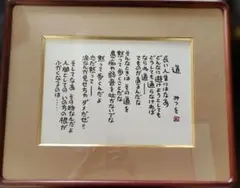 道
みつを
長い人生にはなあ
どんなに避けようとしても
どうしても通らなければ
ならぬ道
てものがあるんだな
そんなときはその道を
黙って歩くことだな
愚痴や弱音を吐かないでな
黙って歩くんだよ
ただ黙って
涙なんか見せちゃダメだぜ
そしてなあその時なんだよ
人間としてのいのちの根が
ふかくなるのは……